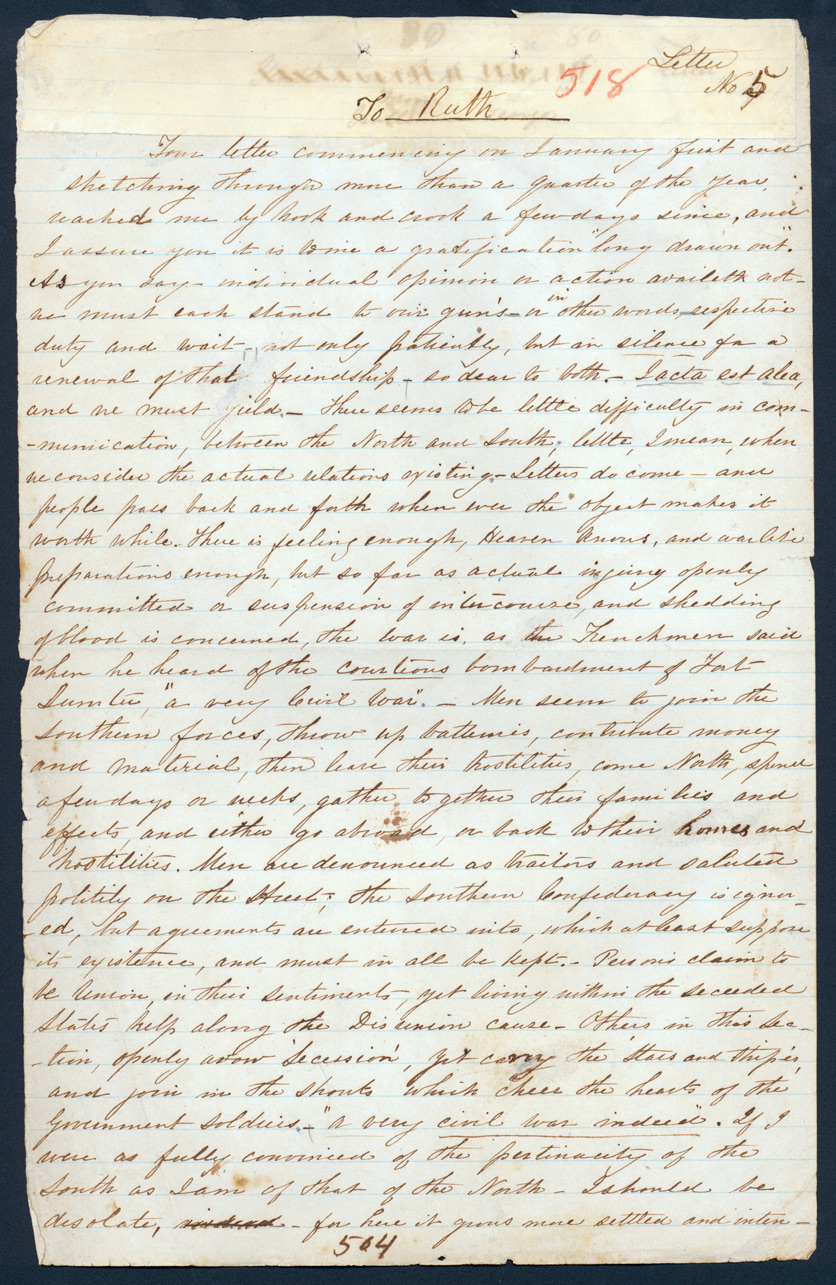 Letter
518
No 5
To Ruth
Your letter commencing on January first and
stretching through more than a quarter of the year,
reached me by hook and crook a few days since, and
I assure you it is to me a gratification "long drawn out".
As you say - individual opinion or action availeth not -
we must each stand to our gun's - or in other words, respective
duty and wait - not only patiently, but in silence for a
renewal of that friendship - so dear to both. - Jacta est alea,
and we must yield. - There seems to be little difficulty in com-
-munication, between the North and South; little, I mean, when
we consider the actual relations existing - Letters do come - and
people pass back and forth when ever the object makes it
worth while. There is feeling enough, Heaven knows, and warlike
preparations enough, but so far as actual injury openly
committed or suspension of intercourse, and shedding
of blood is concerned, the war is, as the Frenchmen said
when he heard of the courteous bombardment of Fort
Sumter, "a very Civil War". - Men seem to join the
southern forces, throw up batteries, contribute money
and material, then leave their hostilities, come North, spend
a few days or weeks, gather together their families and
effects, and either go abroad, or back to their homes and
hostilities. Men are denounced as traitors and saluted
politely on the Street; the Southern Confederacy is ignor-
-ed, but agreements are entered into, which at least suppose
its existence, and must in all be kept. - Person's claim to
be Union, in their sentiments - yet living within the seceeded
States help along the Disunion cause - Others in this sec-
-tion, openly avow 'Secession', yet carry the Stars and Stripes,
and join in the shouts which cheer the hearts of the
Government soldiers - "a very civil war indeed". If I
were as fully convinced of the pertinacity of the
South as I am of that of the North - I should be
desolate, indeed - for here it grows more settled and inten-
504